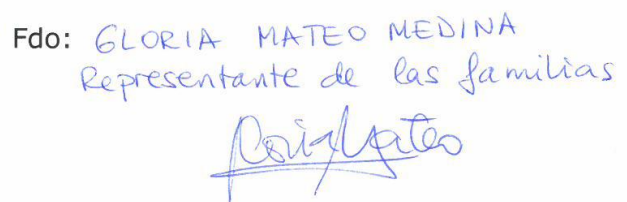 Fdo: GLORIA MATEO MEDINA
Representante de las familias
Gloria Mateo